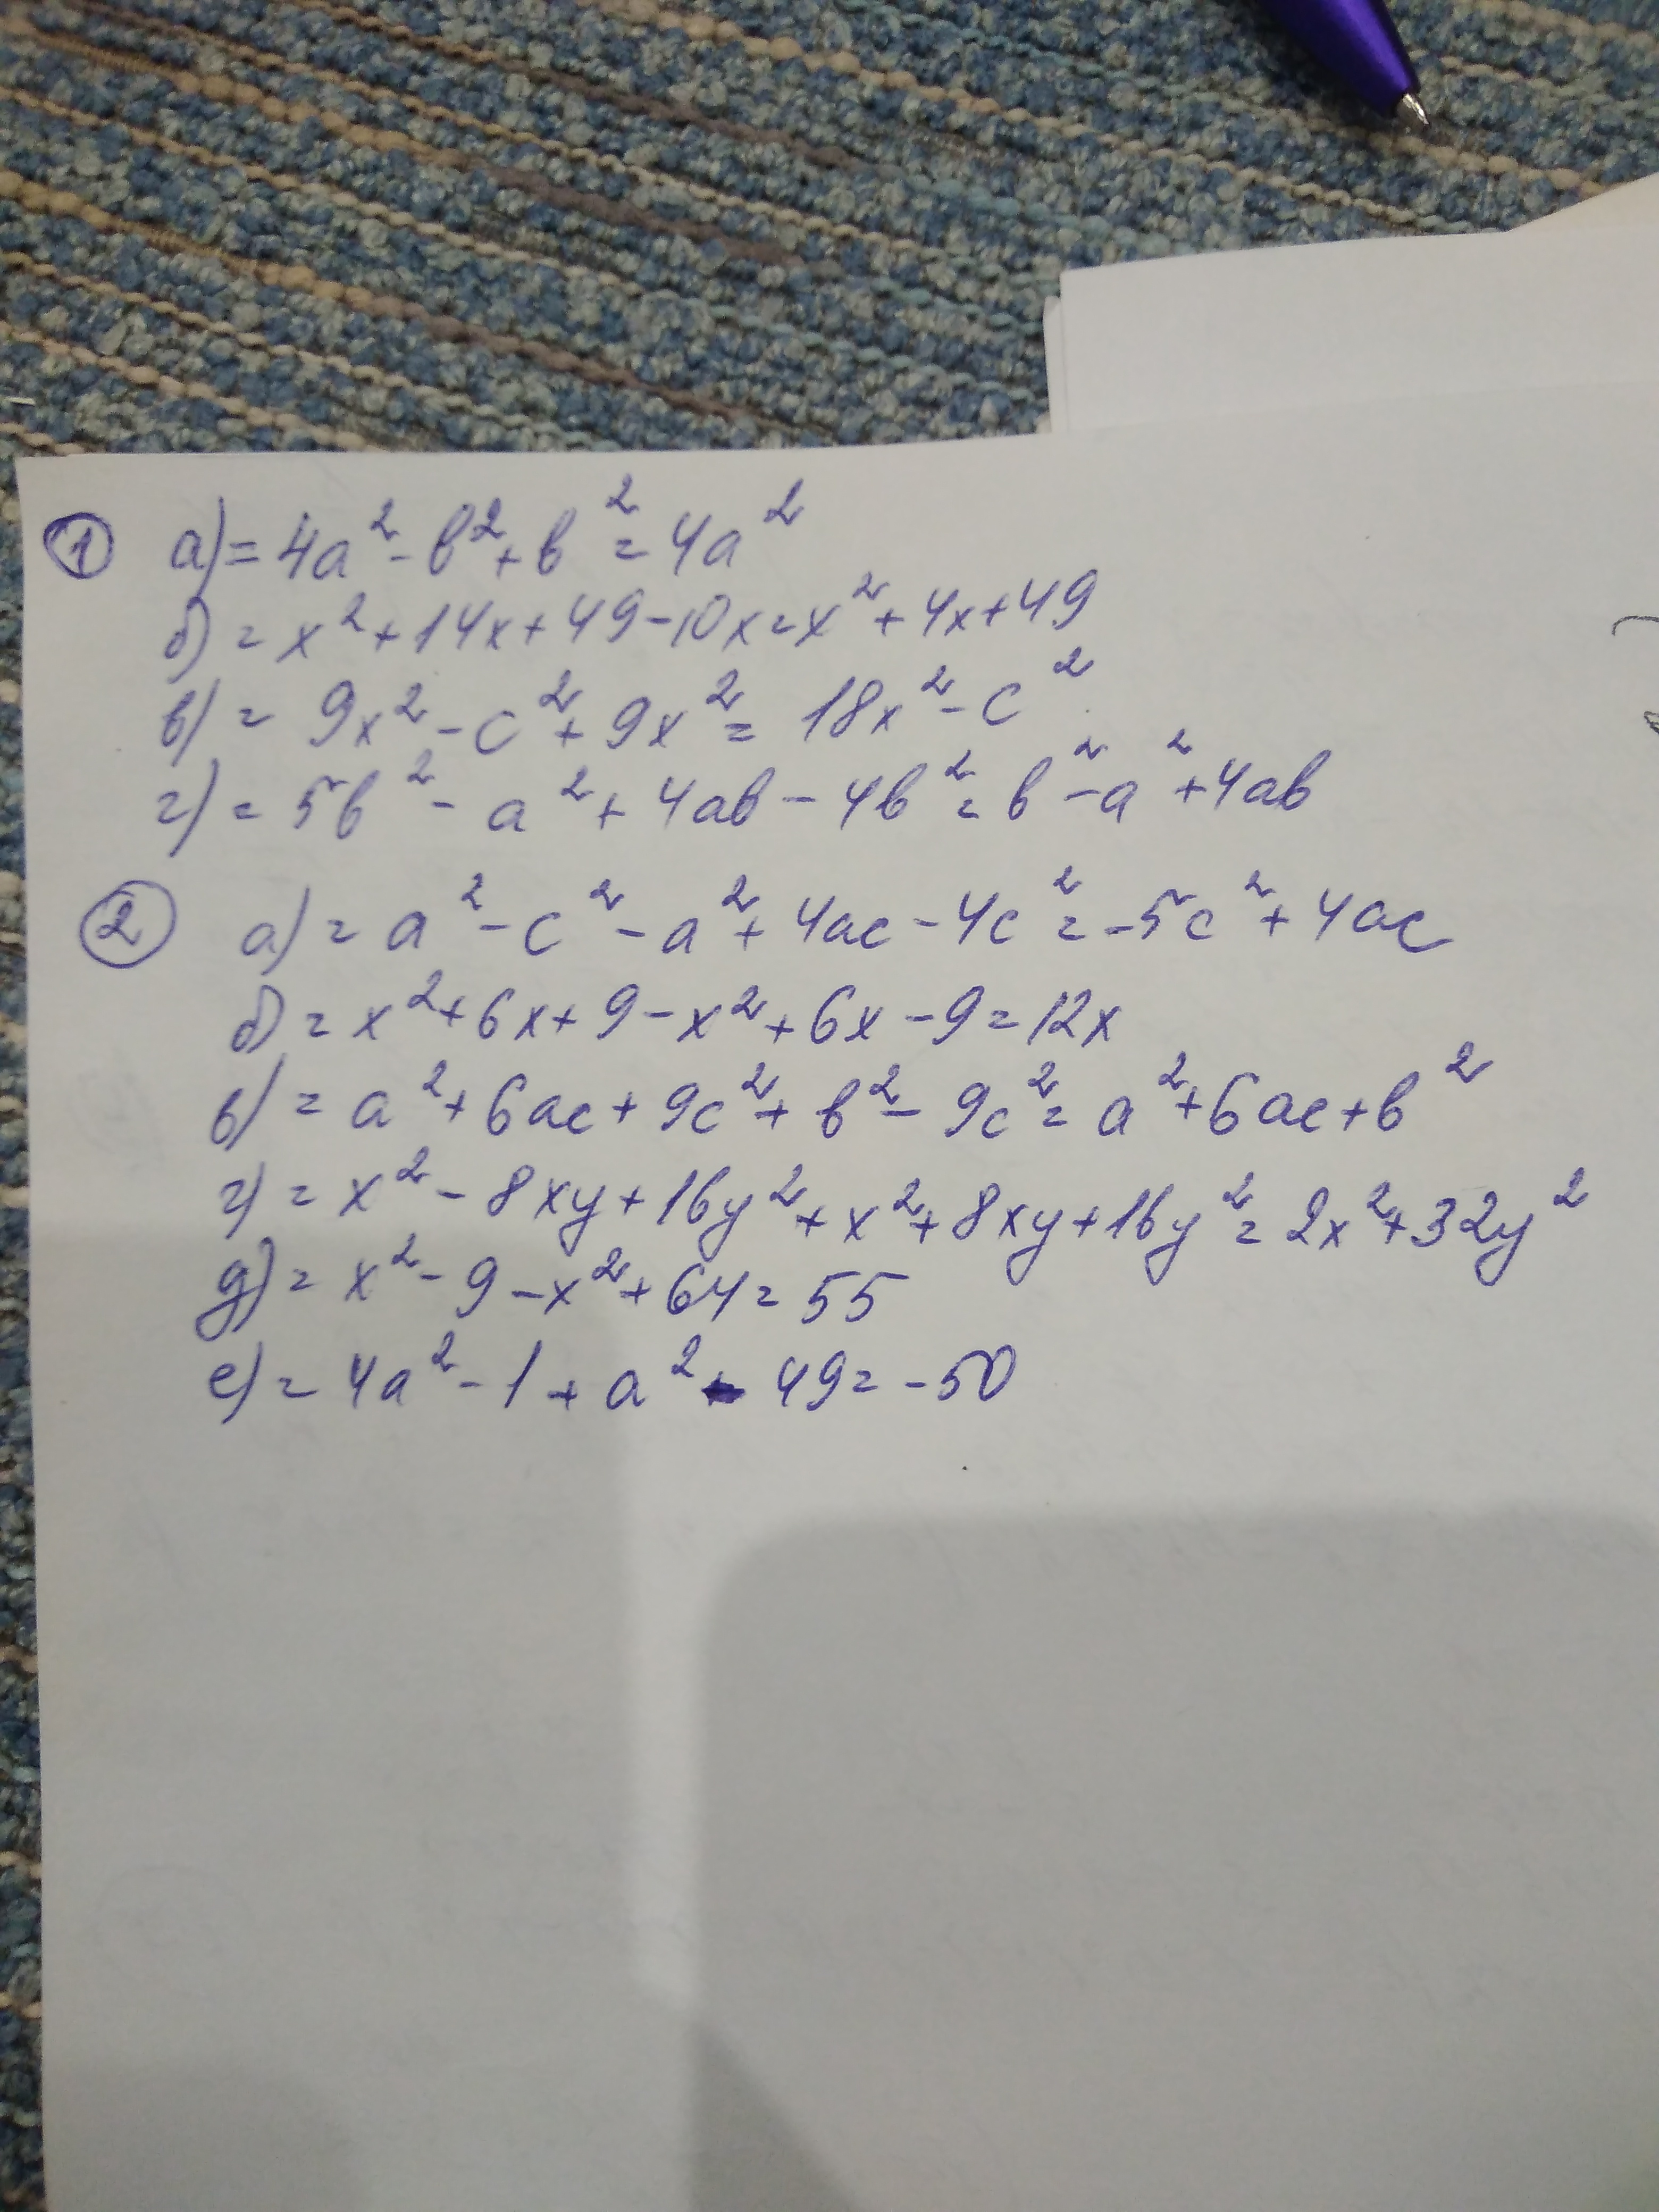 ① а) = 4a² - b² + b² = 4a²
б) = x² + 14x + 49 - 10x = x² + 4x + 49
в) = 9x² - c² + 9x² = 18x² - c²
г) = 5b² - a² + 4ab - 4b² = b² - a² + 4ab
② а) = a² - c² - a² + 4ac - 4c² = -5c² + 4ac
б) = x² + 6x + 9 - x² + 6x - 9 = 12x
в) = a² + 6ac + 9c² + b² - 9c² = a² + 6ac + b²
г) = x² - 8xy + 16y² + x² + 8xy + 16y² = 2x² + 32y²
д) = x² - 9 - x² + 64 = 55
е) = 4a² - 1 + a² - 49 = -50